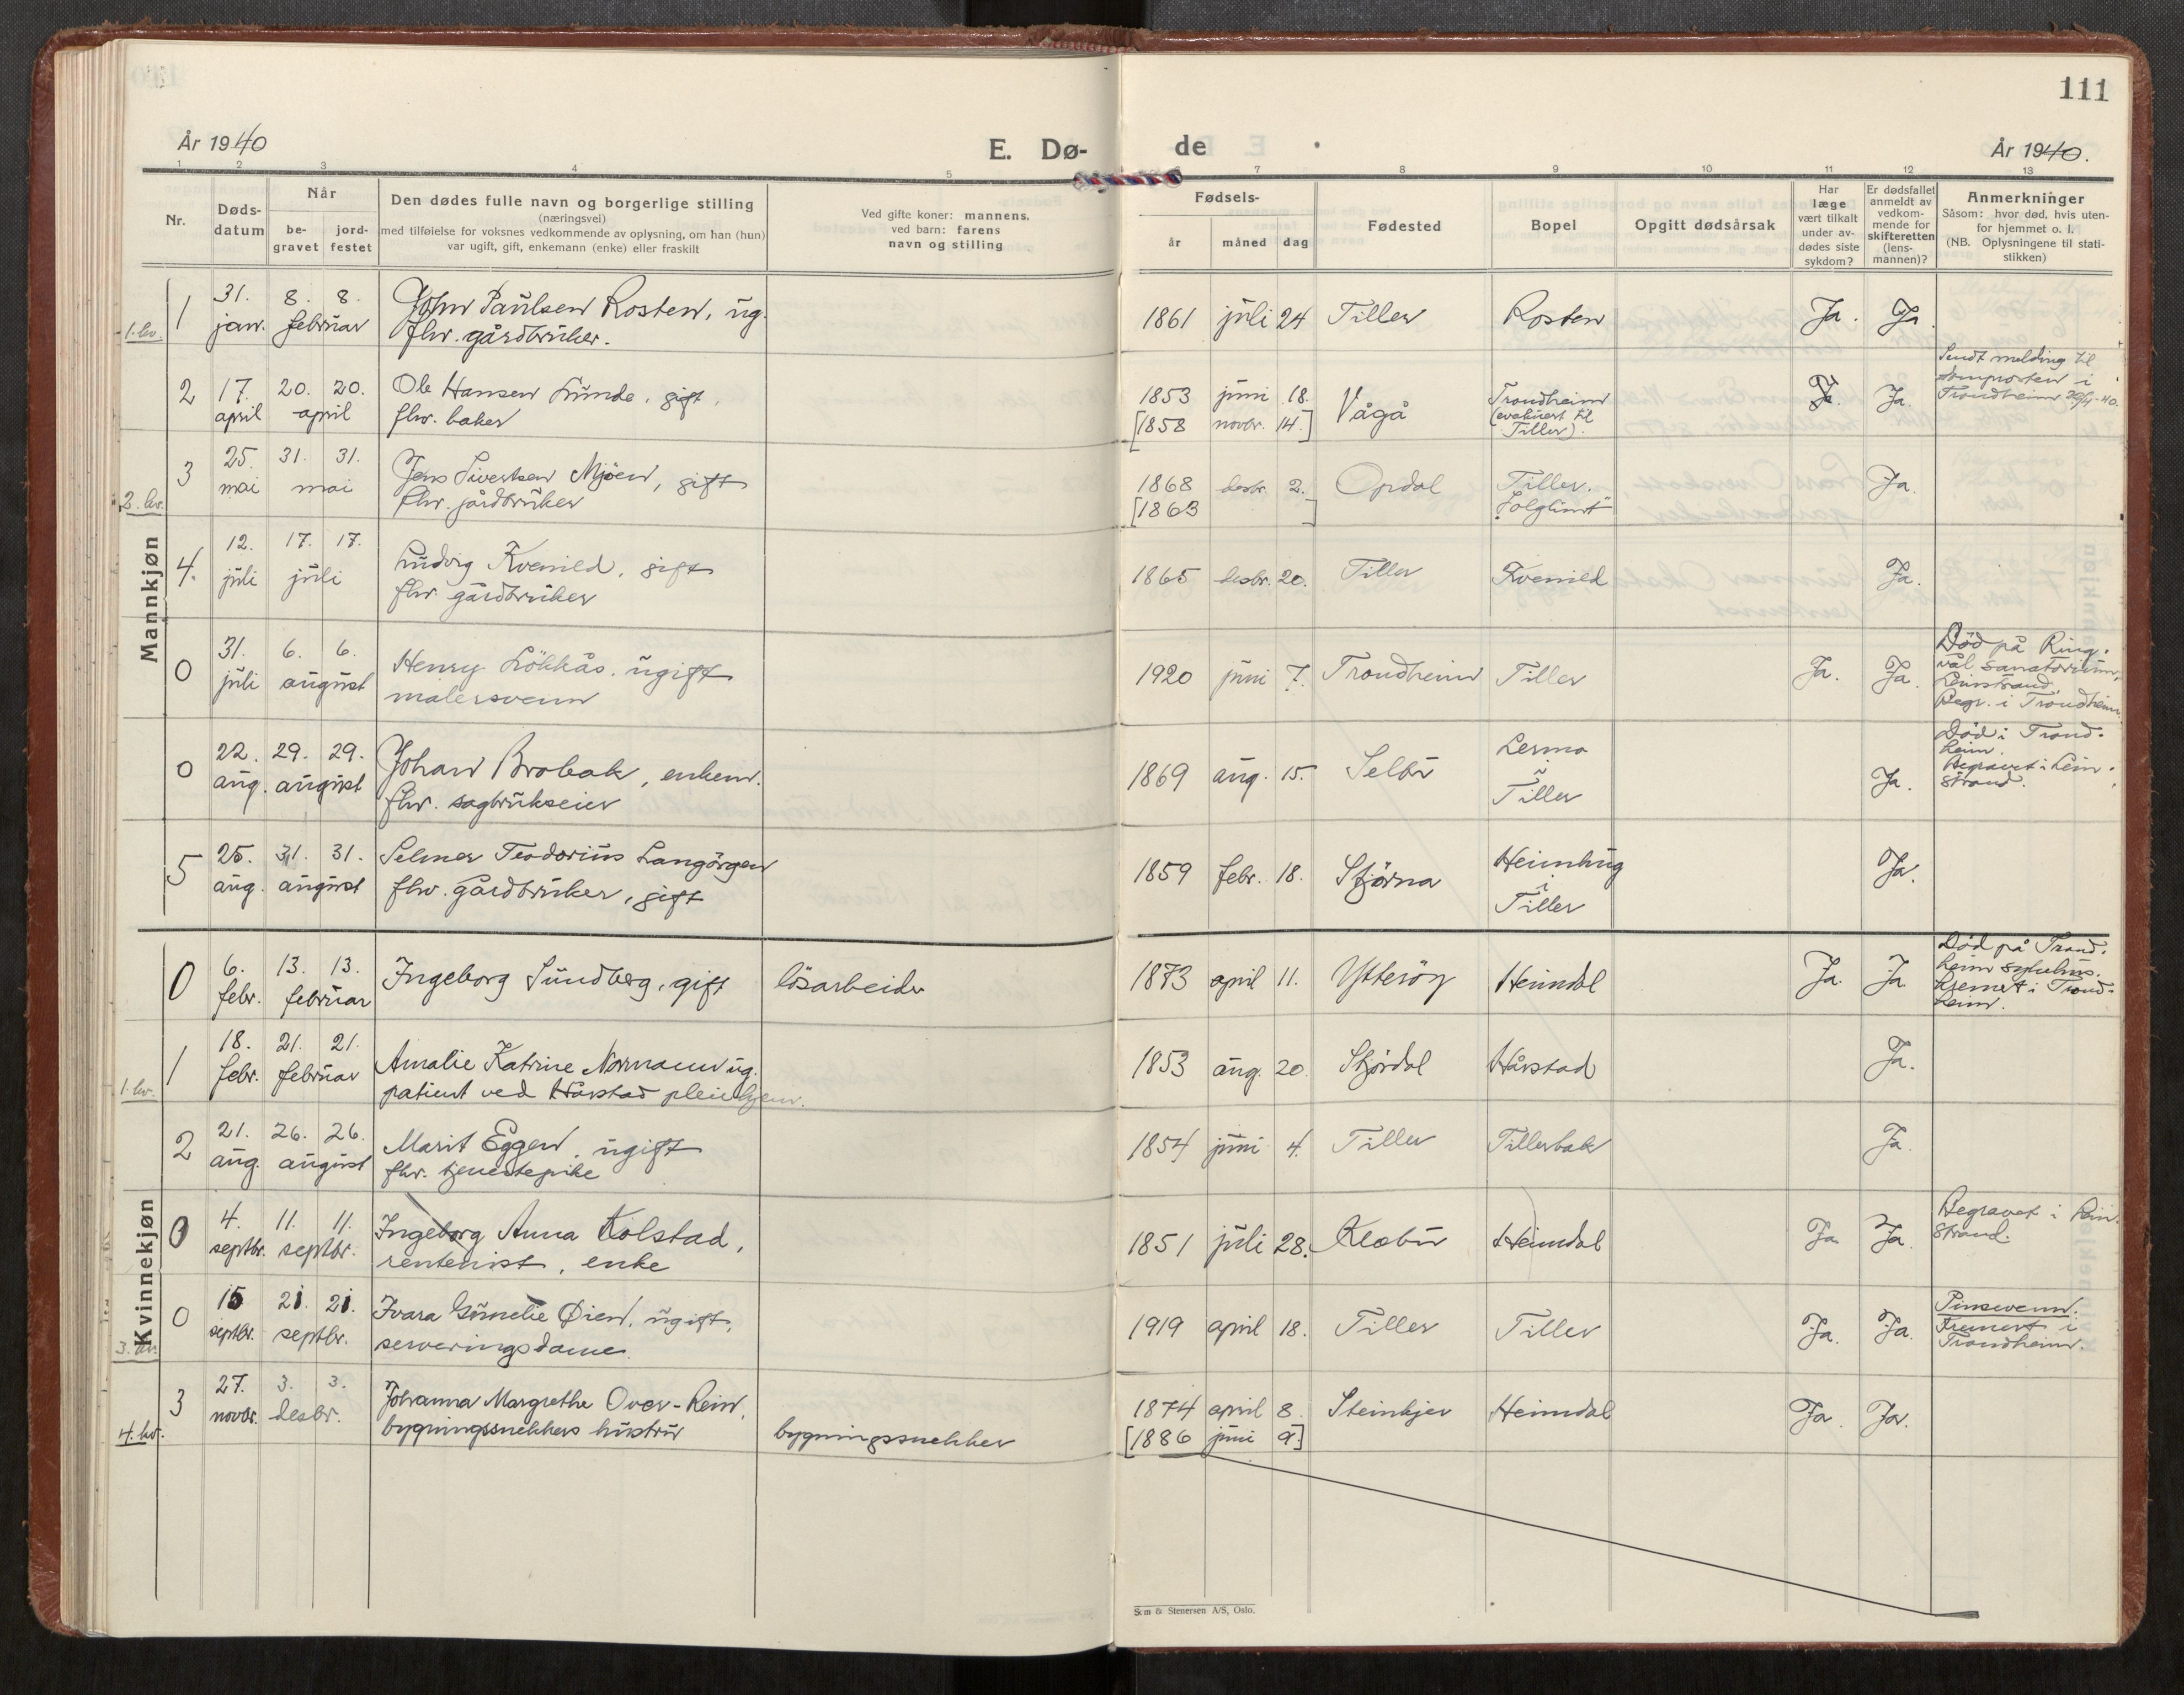 111
År 1940
E. Dø-
de
År 1940.
1 2 3 4 5
7 8 9 10 11 12 13
Nr.
Døds-
datum
Når
be-
gravet
jord-
festet
Den dødes fulle navn og borgerlige stilling
(næringsvei)
med tilføielse for voksnes vedkommende av oplysning, om han (hun)
var ugift, gift, enkemann (enke) eller fraskilt
Ved gifte koner: mannens.
ved barn: farens
navn og stilling
Fødsels-
år
måned
dag
Fødested
Bopel
Opgitt dødsårsak
Har
læge
vært tilkalt
under av-
dødes siste
sykdom?
Er dødsfallet
anmeldt av
vedkom-
mende for
skifteretten
(lens-
mannen)?
Anmerkninger
Såsom: hvor død, hvis uten-
for hjemmet o. l.
(NB. Oplysningene til stati-
stikken)
Mannkjøn
1. kv.
1 31. jan. 8. 8. februar John Paulsen Rosten, ug.
fhv. gårdbruker.
1861 juli 24 Tiller Rosten Ja. Ja.
2 17. april 20. 20. april Ole Hansen Lunde, gift,
fhv. baker
1853 juni 18.
[1858 novbr. 14.]
Vågå
Trondheim
(evakuert til
Tiller).
Ja. Ja.
Sendt melding til
domprosten i
Trondheim 29/4-40.
2. kv.
3 25. mai 31. 31. mai Jens Sivertsen Mjöen, gift
fhv. gårdbruker
1868 desbr. 2.
[1863 ]
Opdal
Tiller.
"Solglimt"
Ja.
4. 12. juli 17. 17. juli Ludvig Kvenild, gift
fhv. gårdbruker
1865 desbr. 20. Tiller Kvenild Ja.
0 31. juli 6. 6. august Henry Lökkås, ugift
malersvenn
1920 juni 7. Trondheim Tiller Ja. Ja.
Död på Ring-
vål sanatorium,
Leinstrand.
Begr. i Trondheim.
0 22. aug. 29. 29. august Johan Brobak, enkem.
fhv. sagbrukseier
1869 aug. 15. Selbu
Lerma
i
Tiller
Ja.
Död i Trond-
heim.
Begravet i Lein-
strand.
5 25. aug. 31. 31. august Selmer Teodorius Langörgen
fhv. gårdbruker, gift
1859 febr. 18. Stjørna
Heimhug
i
Tiller
Ja.
Kvinnekjøn
0 6. febr. 13. 13. februar Ingeborg Sundberg, gift lösarbeider
1873 april 11. Ytterøy Heimdal Ja. Ja.
Död på Trond-
heim sykehus.
Kremert i Trond-
heim.
1. kv.
1 18. febr. 21. 21. februar Amalie Katrine Normann ug.
patient ved Hårstad pleiehjem.
1853 aug. 20. Stjørdal Hårstad Ja.
2 21. aug. 26. 26. august Marit Eggen, ugift
fhv. tjenestepike
1854 juni 4. Tiller Tillerbak Ja.
0 4. septbr. 11. 11. septbr. Ingeborg Anna Kolstad,
rentenist, enke
1851 juli 28. Klæbu Heimdal Ja Ja.
Begravet i Lein-
strand.
3. kv.
0 15 septbr. 21. 21. septbr. Ivara Gunelie Øien, ugift,
serveringsdame.
1919 april 18. Tiller Tiller Ja. Ja.
Pinsevenn.
Kremert i
Trondheim.
4. kv.
3 27. novbr. 3. 3. desbr. Johanna Margrethe Over-Rein,
bygningssnekkers hustru bygningssnekker
1874 april 8.
[1886 juni 9.]
Steinkjer Heimdal Ja. Ja.
Sem & Stenersen A/S, Oslo.